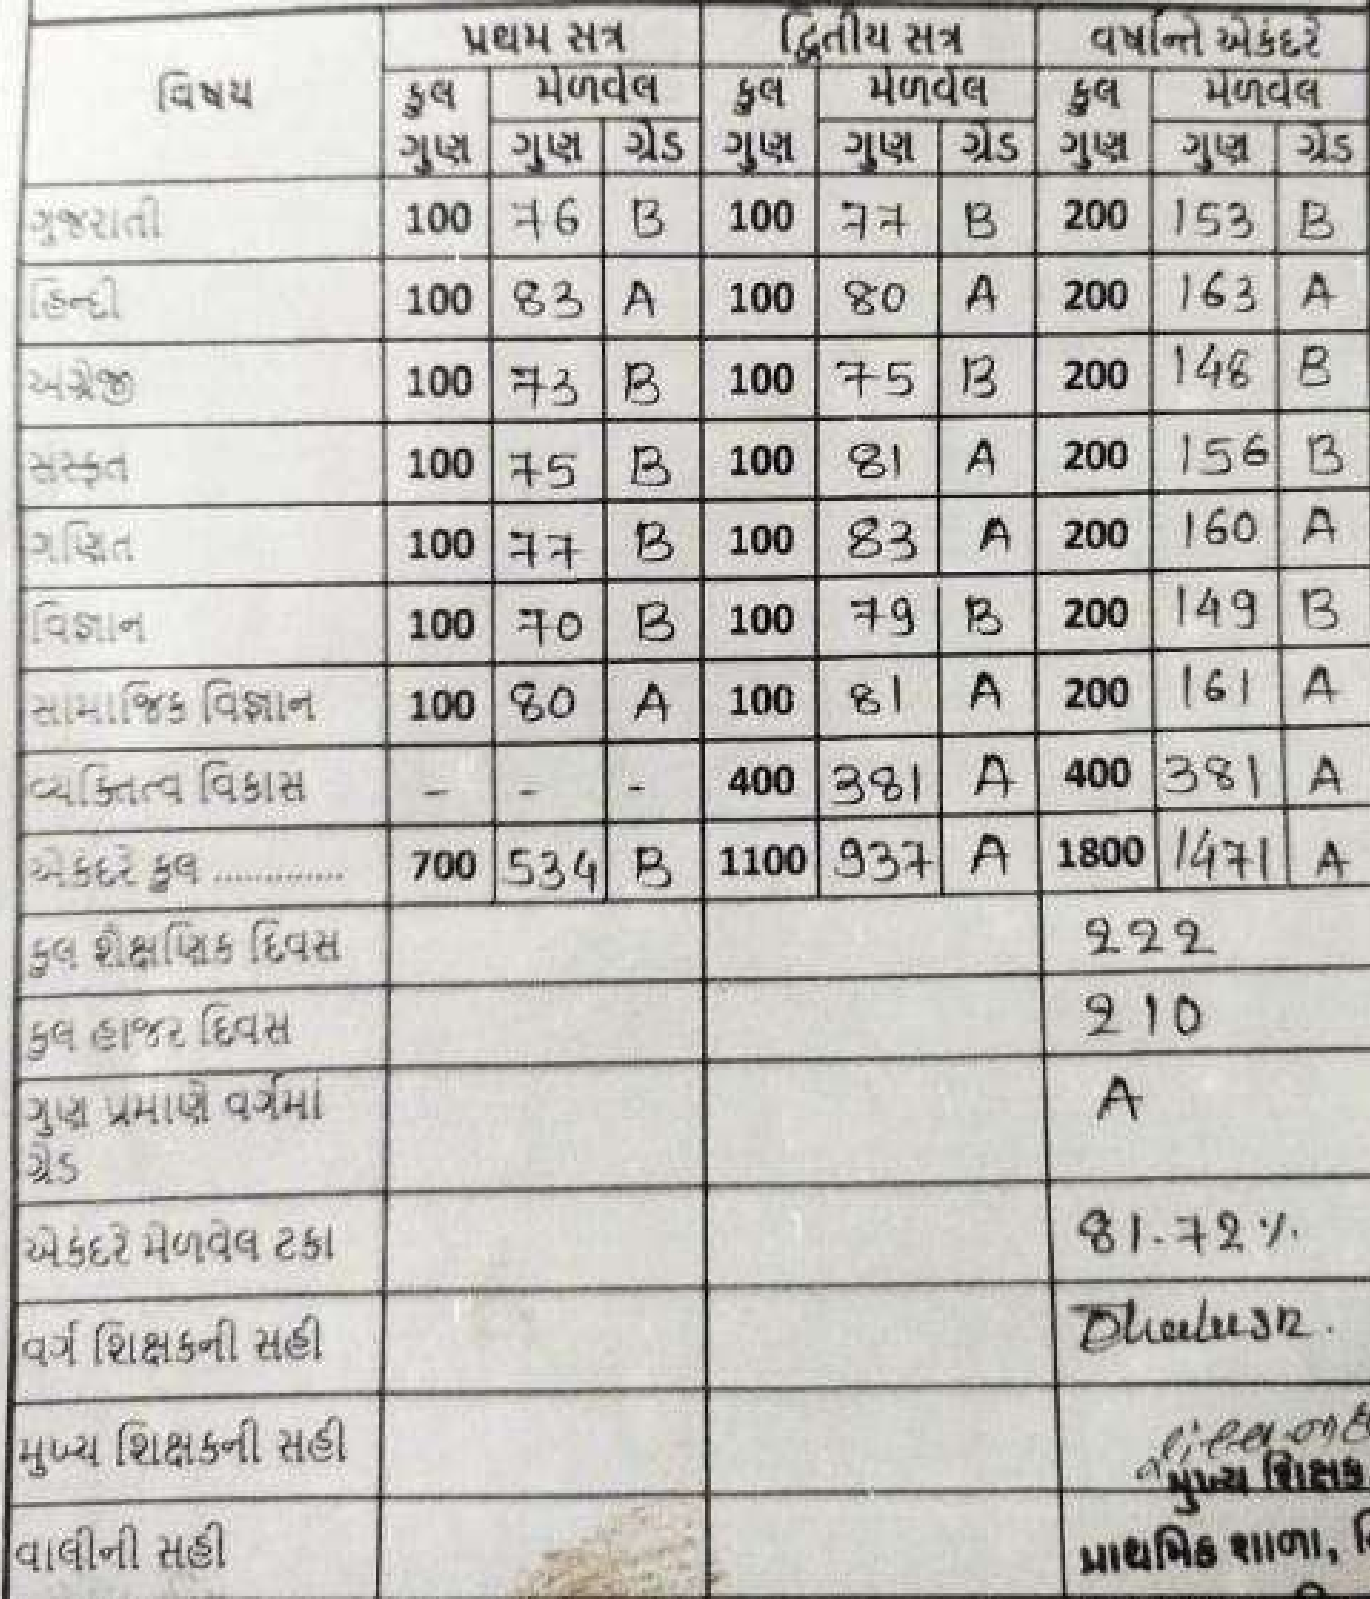 પ્રથમ સત્ર દ્વિતીય સત્ર વર્ષાન્તે એકંદરે
વિષય કુલ ગુણ મેળવેલ કુલ ગુણ મેળવેલ કુલ ગુણ મેળવેલ
ગુણ ગ્રેડ ગુણ ગ્રેડ ગુણ ગ્રેડ
ગુજરાતી 100 76 B 100 77 B 200 153 B
હિન્દી 100 83 A 100 80 A 200 163 A
અંગ્રેજી 100 73 B 100 75 B 200 148 B
સંસ્કૃત 100 75 B 100 81 A 200 156 B
ગણિત 100 77 B 100 83 A 200 160 A
વિજ્ઞાન 100 70 B 100 79 B 200 149 B
સામાજિક વિજ્ઞાન 100 80 A 100 81 A 200 161 A
વ્યક્તિત્વ વિકાસ - - - 400 381 A 400 381 A
એકંદરે કુલ ............. 700 534 B 1100 937 A 1800 1471 A
કુલ શૈક્ષણિક દિવસ 222
કુલ હાજર દિવસ 210
ગુણ પ્રમાણે વર્ગમાં A
ગ્રેડ
એકંદરે મેળવેલ ટકા 81.72%
વર્ગ શિક્ષકની સહી
મુખ્ય શિક્ષકની સહી
મુખ્ય શિક્ષક
વાલીની સહી પ્રાથમિક શાળા,